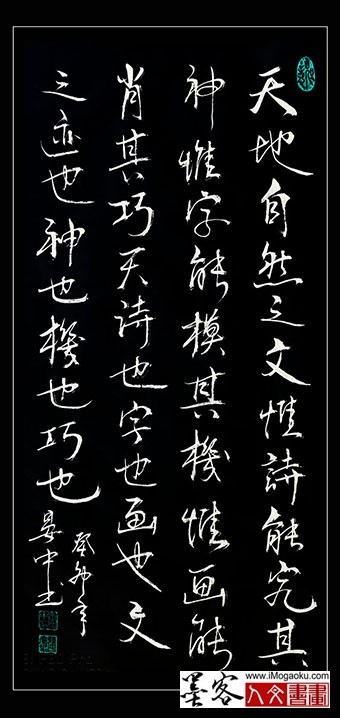 天地自然之文惟詩能究其
神惟字能模其機惟画能
肖其巧天詩也字也画也文
之迹也神也機也巧也
癸卯年
晏中書
墨客
www.iMogaoku.com
人文書畫